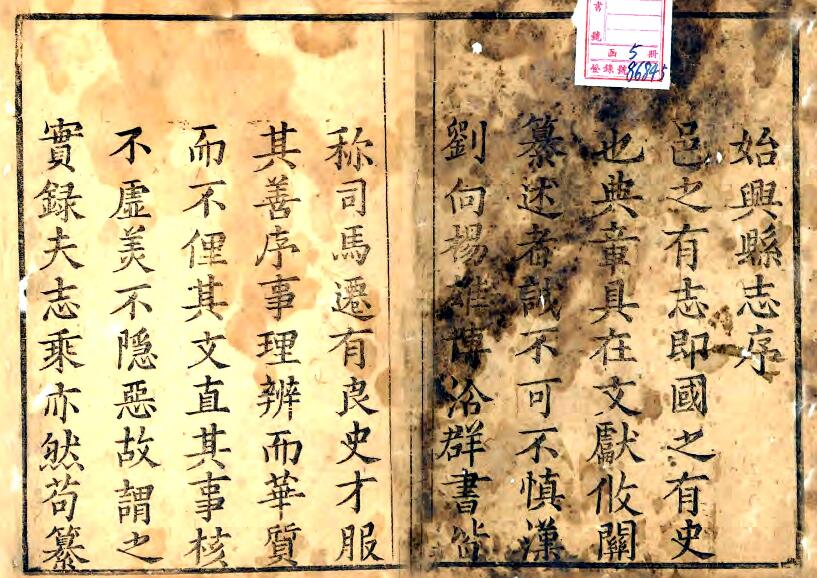 始興縣志序
邑之有志即國之有史
也典章具在文獻攸關
纂述者誠不可不慎漢
劉向楊雄博洽群書皆
称司馬遷有良史才服
其善序事理辨而華質
而不俚其文直其事核
不虛美不隠惡故謂之
實録夫志乘亦然苟纂
號
函 5 冊
登錄號